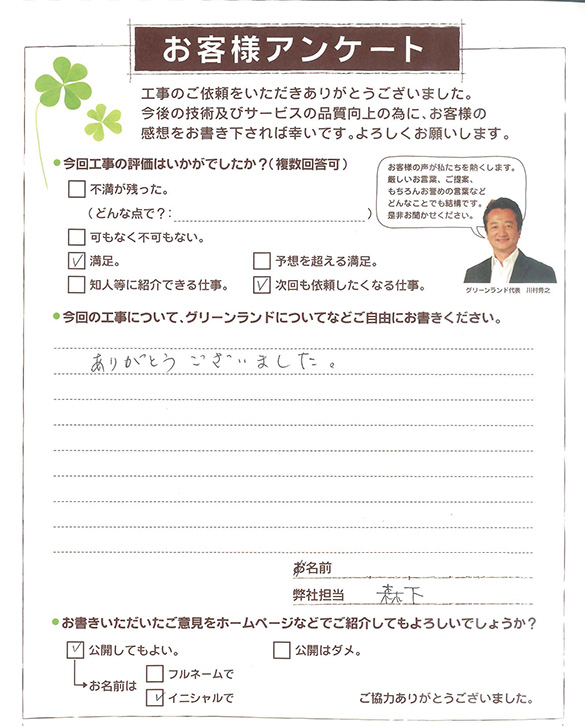 お客様アンケート
工事のご依頼をいただきありがとうございました。
今後の技術及びサービスの品質向上の為に、お客様の
感想をお書き下されば幸いです。よろしくお願いします。
●今回工事の評価はいかがでしたか？（複数回答可）
不満が残った。
（どんな点で？：　　　　　）
可もなく不可もない。
満足。
予想を超える満足。
知人等に紹介できる仕事。
次回も依頼したくなる仕事。
お客様の声が私たちを熱くします。
厳しいお言葉、ご提案、
もちろんお誉めの言葉など
どんなことでも結構です。
是非お聞かせください。
グリーンランド代表　川村秀之
●今回の工事について、グリーンランドについてなどご自由にお書きください。
ありがとうございました。
お名前
弊社担当　森下
●お書きいただいたご意見をホームページなどでご紹介してもよろしいでしょうか？
公開してもよい。
公開はダメ。
お名前は
フルネームで
イニシャルで
ご協力ありがとうございました。